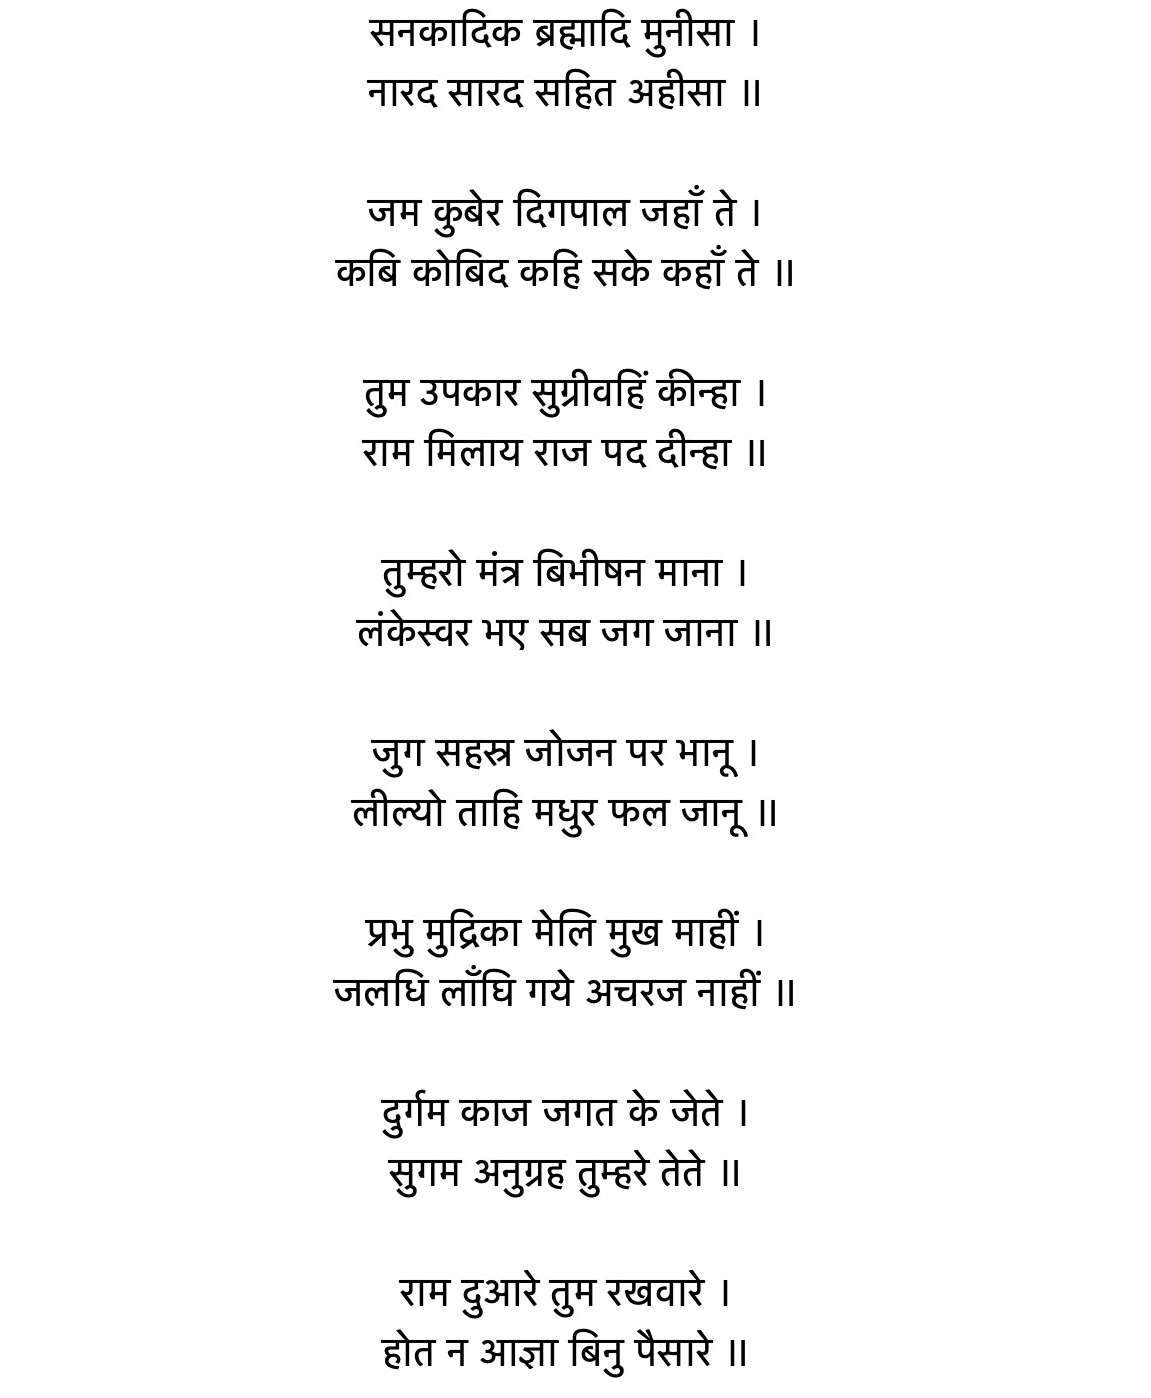 सनकादिक ब्रह्मादि मुनीसा ।
नारद सारद सहित अहीसा ॥
जम कुबेर दिगपाल जहाँ ते ।
कबि कोबिद कहि सके कहाँ ते ॥
तुम उपकार सुग्रीवहिं कीन्हा ।
राम मिलाय राज पद दीन्हा ॥
तुम्हरो मंत्र बिभीषन माना ।
लंकेस्वर भए सब जग जाना ॥
जुग सहस्र जोजन पर भानू ।
लील्यो ताहि मधुर फल जानू ॥
प्रभु मुद्रिका मेलि मुख माहीं ।
जलधि लाँघि गये अचरज नाहीं ॥
दुर्गम काज जगत के जेते ।
सुगम अनुग्रह तुम्हरे तेते ॥
राम दुआरे तुम रखवारे ।
होत न आज्ञा बिनु पैसारे ॥